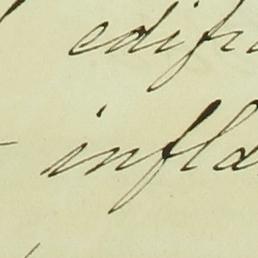 edifi
infla